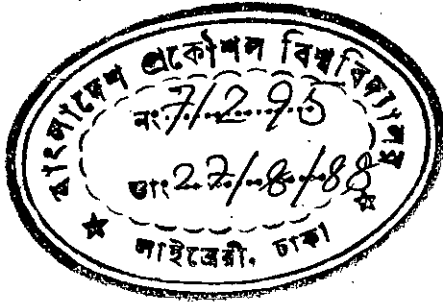 বাংলাদেশ প্রকৌশল বিশ্ববিদ্যালয়
নং 71295
তাং 27/8/88
লাইব্রেরী, ঢাকা